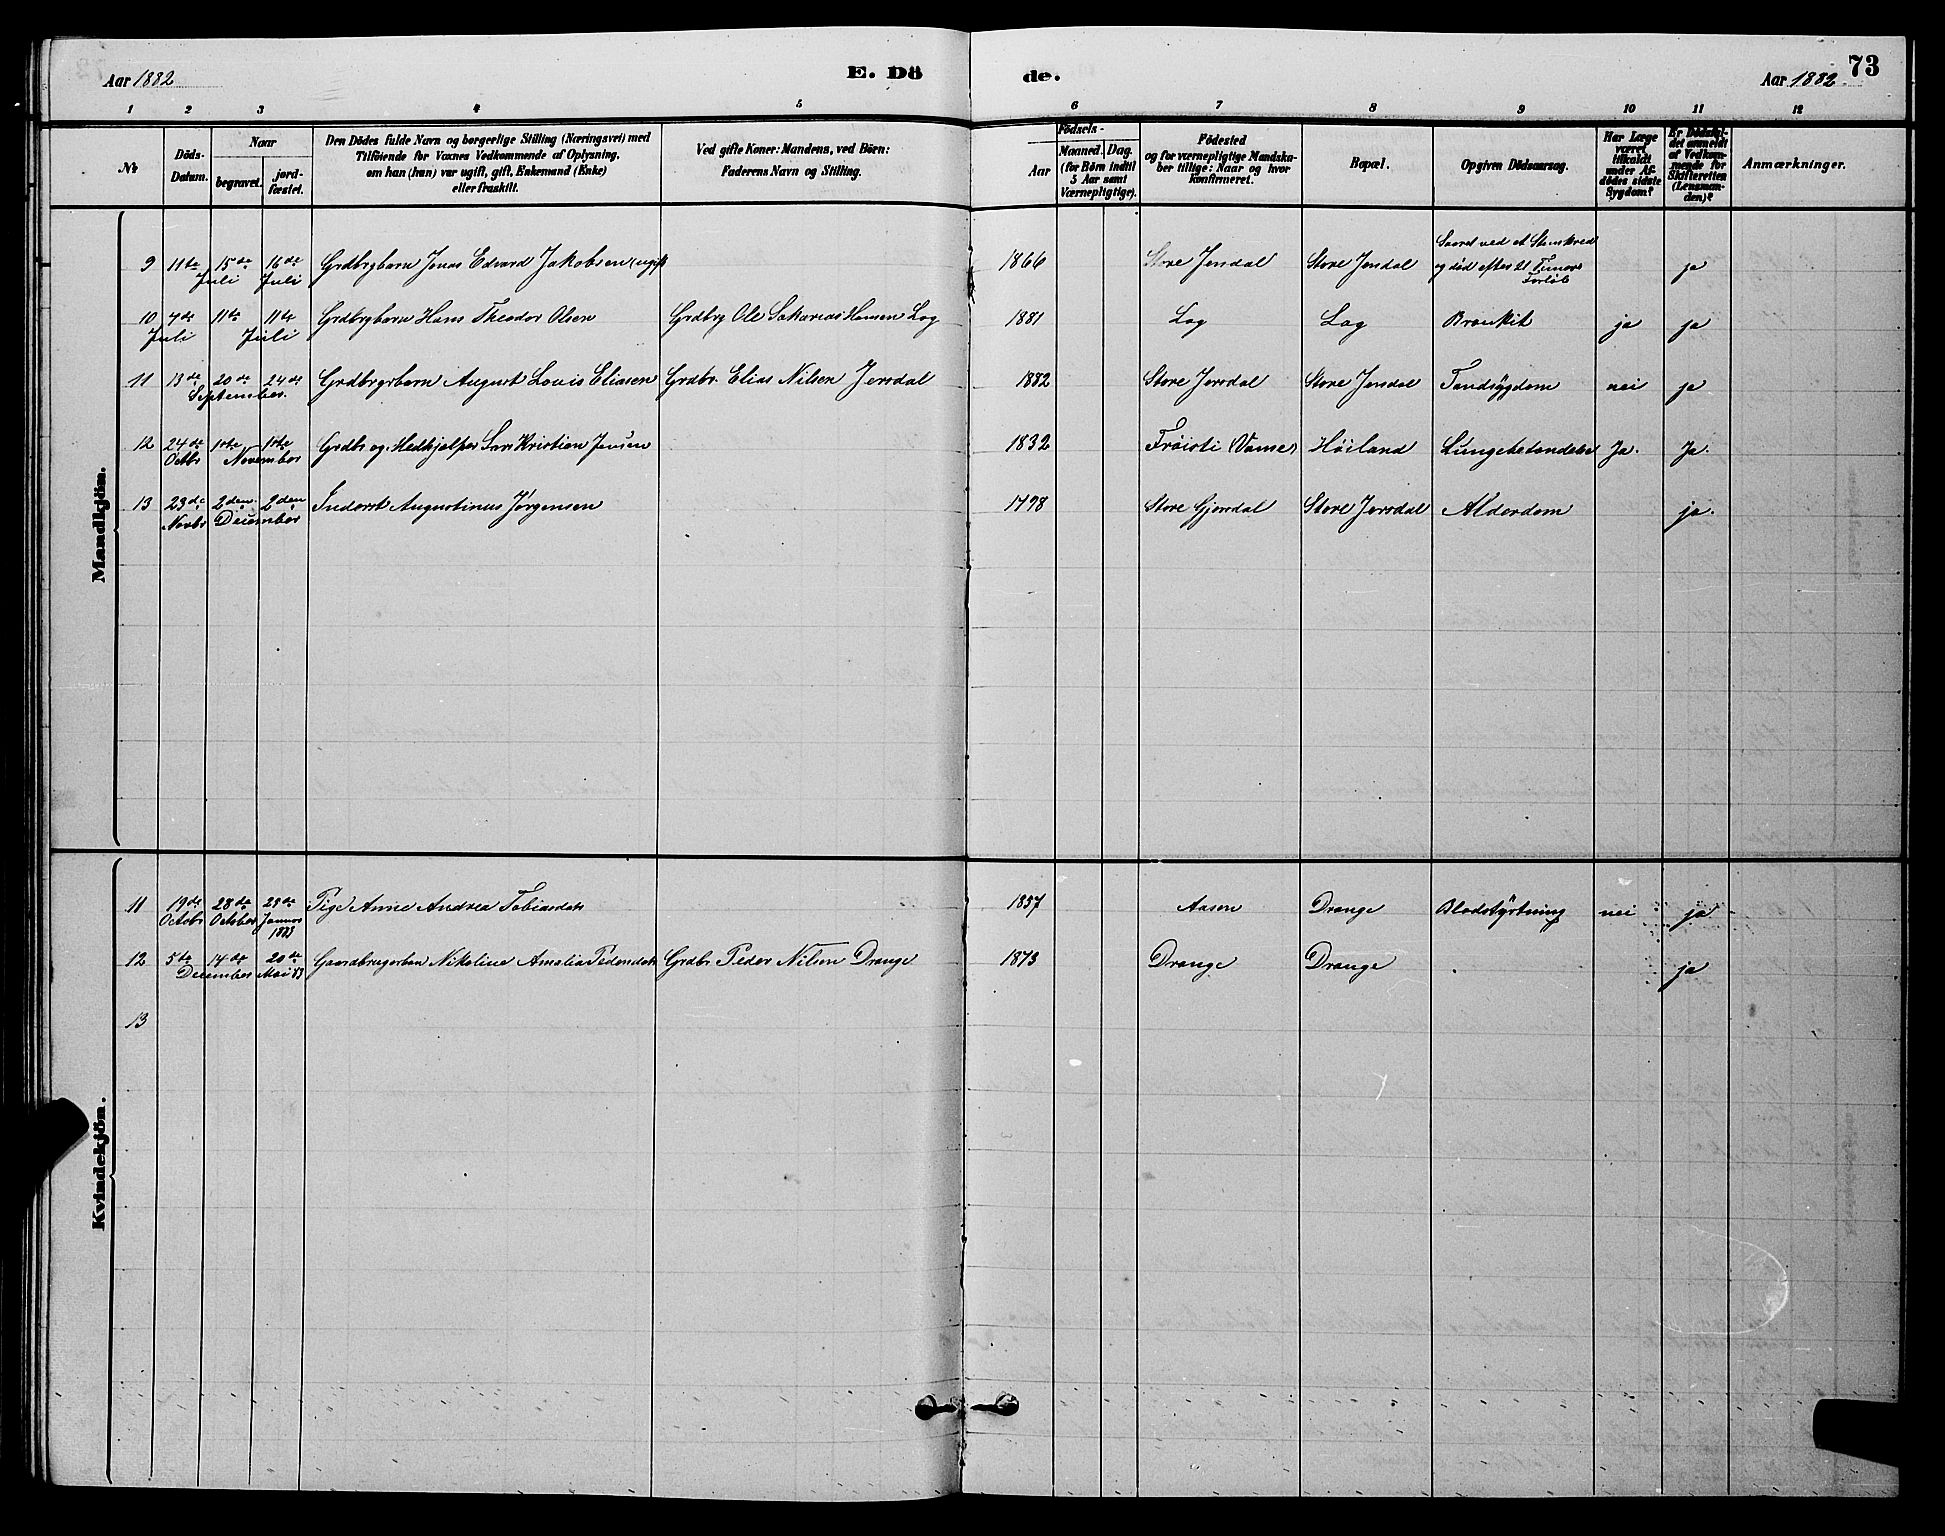 Aar 1882
E. Dö
de.
Aar 1882
73
1 2 3 4 5 6 7 8 9 10 11 12
No
Döds-
Datum.
Naar
begravet.
jord-
fæstet.
Den Dödes fulde Navn og borgerlige Stilling (Næringsvei) med
Tilföiende for Voxnes Vedkommende af Oplysning,
om han (hun) var ugift, gift, Enkemand (Enke)
eller fraskilt.
Ved gifte Koner: Mandens, ved Börn:
Faderens Navn og Stilling.
Födsels-
Aar
Maaned. Dag.
(for Börn indtil
5 Aar samt
Værnepligtige).
Födested
og for værnepligtige Mandska-
ber tillige: Naar og hvor
konfirmeret.
Bopæl.
Opgiven Dödsaarsag.
Har Læge
været
tilkaldt
under Af-
dödes sidste
Sygdom?
Er Dödsfal-
det anmeldt
af Vedkom-
mende for
Skifteretten
(Lensman-
den)?
Anmærkninger.
Mandkjön.
9 11te 15de 16de Grdbrgbarn Jonas Edvard Jakobsen (ugift 1866 Store Jersdal Store Jersdal Saaret ved et Stenskred ja
Juli Juli og död efter 21 Timers
Forlöb
10 7de 11te 11te Grdbrgbarn Hans Theodor Olsen Grdbrg Ole Sakarias Hansen Log 1881 Log Log Bronkit ja ja
Juli Juli
11 13de 20de 24de Grdbrgrbarn August Louis Eliasen Grdbr. Elias Nilsen Jersdal 1882 Store Jersdal Store Jersdal Tandsygdom nei ja
September.
12 24de 10de 10de Grdbr og Medhjelper Lars Kristian Jensen 1832 Fröisti (Vanse) Höiland Lungebetændelse Ja. Ja.
Octbr November
13 23de 2den 2den Inderst Augustinus Jörgensen 1798 Store Gjersdal Store Jersdal Alderdom ja.
Novbr December
Kvindekjön.
11 19de 28de 25de Pige Anne Andrea Tobiasdatr 1857 Aasen Drange Blodstyrtning nei ja
Octobr October Januar
1883
12 5te 14de 20de Gaardbrugerbarn Nikoline Amalia Pedersdatr Grdbr. Peder Nilsen Drange 1873 Drange Drange ja
December Mai 83
13